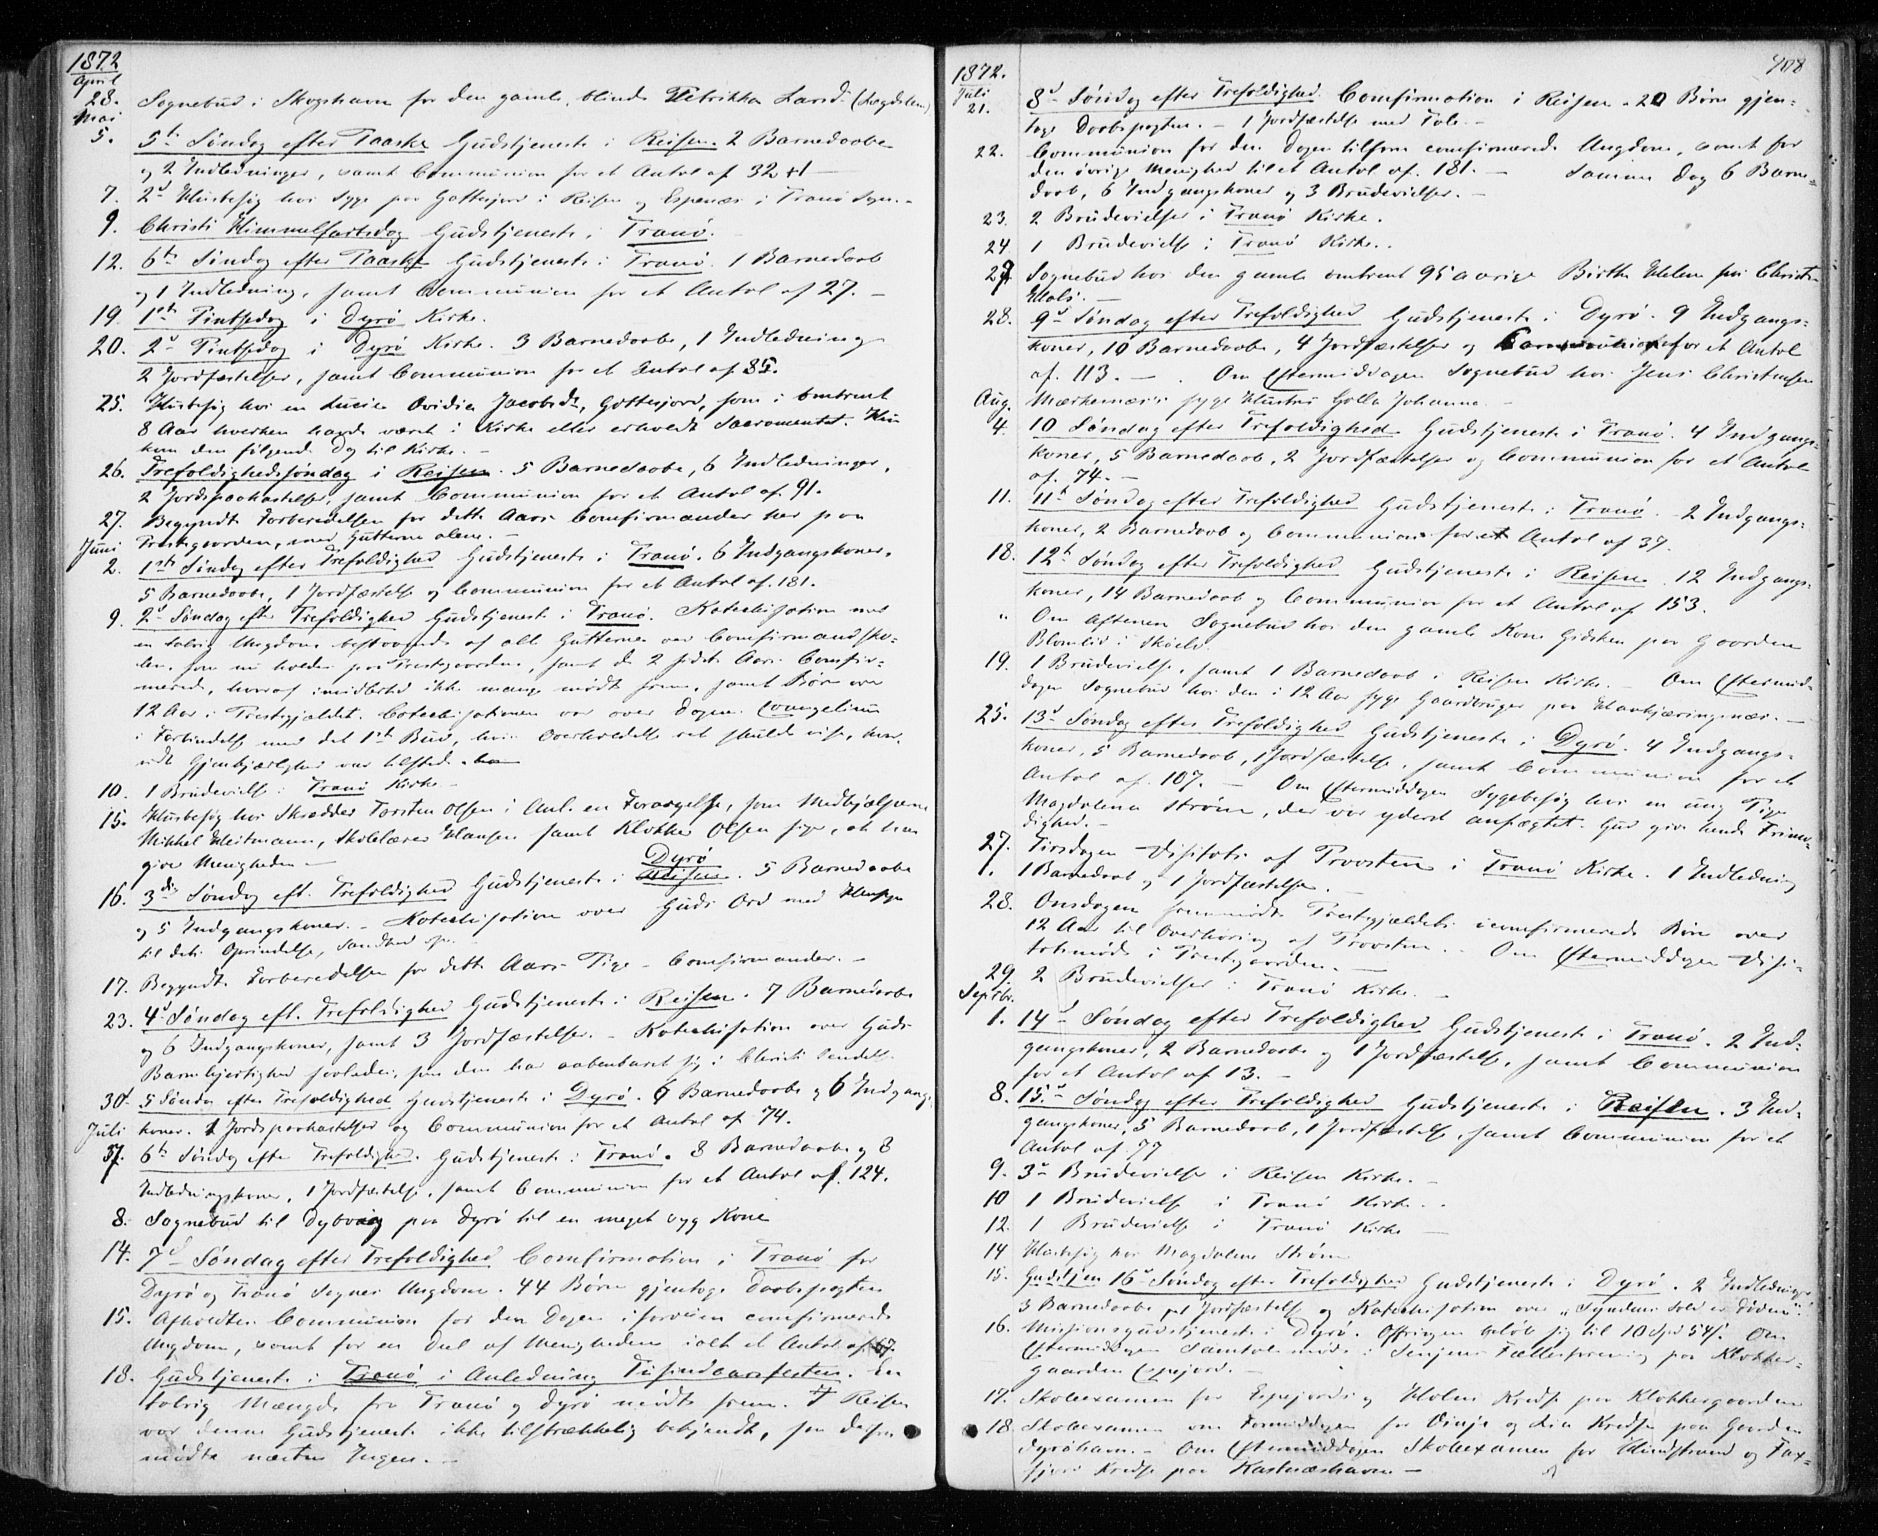 1872
April
28. Sognebud i Skogshavn for den gamle, blinde Petrikka Larsd. (Lægdslem)
Mai
5. 5te Søndag efter Paaske Gudstjeneste i Reisen. 2 Barnedaabe
og 2 Indledninger, samt Communion for et Antal af 32
7. 2d Husbesøg hos Syge paa Gottesjord i Reisen og Espenæs i Tranø Sogn.
9. Christi Himmelfartsdag Gudstjeneste i Tranø.
12. 6te Søndag efter Paaske Gudstjeneste i Tranø. 1 Barnedaab
og 1 Indledning, samt Communion for et Antal af 27. –
19. 1ste Pintsedag i Dyrø Kirke.
20. 2d Pintsedag i Dyrø Kirke. 3 Barnedaabe, 1 Indledning
2 Jordfæstelser, samt Communion for et Antal af 85.
25. Husbesøg hos en Lucie Ovidia Jacobsdr, Gottesjord, som i omtrent
8 Aar hverken havde været i Kirke eller erholdt Sacramentet. Hun
kom den følgende Dag til Kirke. –
26. Trefoldighedssøndag i Reisen. 5 Barnedaabe, 6 Indledninger,
2 Jordspaakastelser, samt Communion for et Antal af 91.
27. Begyndte Forberedelsen for dette Aars Comfirmander her paa
Præstegaarden, med Gutterne alene. –
Juni
2. 1ste Søndag efter Trefoldighed Gudstjeneste i Tranø. 6 Indgangskoner,
5 Barnedaabe, 1 Jordfæstelse og Communion for et Antal af 181.
9. 2d Søndag eft. Trefoldighed Gudstjeneste i Tranø. Katechisation med
en talrig Ungdom bestaaende af alle Gutterne ved Comfirmandsko-
len, som nu holdes paa Præstegaarden, samt de 2 sidste Aars Comfir-
merede, hvoraf imidlertid ikke mange mødte frem, samt Børn over
12 Aar i Præstegjældet. Catechisationen var over Dagens Evangelium
i Forbindelse med det 1ste Bud, hvis Overholdelse ret skulde vise, hvor-
vidt Gjenkjærlighed var tilstede.
10. 1 Brudevielse i Tranø Kirke –
15. Husbesøg hos Skrædder Torsten Olsen i Anl. en Forargelse, som Medhjælperne
Mikkel Heitmann, Skolelærer Hansen samt Klokker Olsen sige, at han
giver Menigheden –
16. 3die Søndag eft. Trefoldighed Gudstjeneste i Dyrø. 5 Barnedaabe
og 5 Indgangskoner. – Katechisation over Guds Ord med Hensyn
til dets Oprindelse, Sandhed
17. Begyndte Forberedelsen for dette Aars Pige-Comfirmander. –
23. 4d Søndag eft. Trefoldighed Gudstjeneste i Reisen. 7 Barnedaabe
og 6 Indgangskoner, samt 3 Jordfæstelser. – Katechisation over Guds
Barmhjertighed saaledes, som den har aabenbaret sig i Christi Sendelse.
30. 5 Søndag efter Trefoldighed Gudstjeneste i Dyrø. 6 Barnedaabe og 6 Indgangs-
Juli
koner. 1 Jordspaakastelser og Communion for et Antal af 74.
7. 6te Søndag efter Trefoldighed. Gudstjeneste i Tranø. 8 Barnedaabe og 8
Indledningskoner, 1 Jordfæstelse, samt Communion for et Antal af 124.
8. Sognebud til Dybvaag paa Dyrø til en meget syg Kone
14. 7d Søndag efter Trefoldighed Comfirmation i Tranø for
Dyrø og Tranø Sognes Ungdom. 44 Børn gjentoge Daabspagten
15. Afholdtes Communion for den Dagen iforveien comfirmerede
Ungdom, samt for en Deel af Menigheden ialt et Antal af 67.
18. Gudstjeneste i Tranø i Anledning Tusindaarsfesten. En
talrig Mængde fra Tranø og Dyrø mødte frem. I Reisen
var denne Gudstjeneste ikke tilstrækkelig bekjendt, saa derfra
mødte næsten Ingen. –
408
1872.
Juli
21. 8d Søndag efter Trefoldighed. Comfirmation i Reisen. 20 Børn gjen-
toge Daabspagten. – 1 Jordfæstelse med Tale. –
22. Communion for den Dagen tilforn comfirmerede Ungdom, samt for
den øvrige Menighed til et Antal af 181. – Samme Dag 6 Barne-
daab, 6 Indgangskoner og 3 Brudevielser. –
23. 2 Brudevielser i Tranø Kirke.
24 1 Brudevielse i Tranø Kirke.
27 Sognebud hos den gamle omtrent 95 aarige Birthe Helene
28. 9d Søndag efter Trefoldighed Gudstjeneste i Dyrø. 9 Indgangs-
koner, 10 Barnedaabe, 4 Jordfæstelser og Communion for et Antal
af 113. – Om Eftermiddagen Sognebud hos Jens Christensen
Aug.
Mærkenæs's syge Hustru Golla Johanna. –
4. 10 Søndag efter Trefoldighed Gudstjeneste i Tranø. 4 Indgangs-
koner, 5 Barnedaab, 2 Jordfæstelser og Communion for et Antal
af 74. –
11. 11te Søndag efter Trefoldighed Gudstjeneste i Tranø. 2 Indgangs-
koner, 2 Barnedaab og Communion for et Antal af 37.
18. 12te Søndag efter Trefoldighed Gudstjeneste i Reisen. 12 Indgangs-
koner, 14 Barnedaab og Communion for et Antal af 153.
" Om Aftenen Sognebud hos den gamle Kone Gidsken paa Gaarden
Blomlid i Skøelv.
19. 1 Brudevielse, samt 1 Barnedaab i Reisen Kirke. – Om Eftermid-
dagen Sognebud hos den i 12 Aar syge Gaardbruger paa Havkjæringnæs. –
25. 13d Søndag efter Trefoldighed Gudstjeneste i Dyrø. 4 Indgangs-
koner, 5 Barnedaab, 1 Jordfæstelse, samt Communion for et
Antal af 107. – Om Eftermiddagen Sygebesøg hos en ung Pige
Magdalena Strøm, der var yderst anfægtet. Gud give hende Frimo-
dighed. –
27. Tirsdagen Visitats af Provsten i Tranø Kirke. 1 Indledning
1 Barnedaab og 1 Jordfæstelse.
28. Onsdagen fremmødte Præstegjældets icomfirmerede Børn over
12 Aar til Overhøring af Provsten. – Om Eftermiddagen Visi-
tatsmøde i Præstegaarden. –
29. 2 Brudevielser i Tranø Kirke. –
Septbr.
1. 14d Søndag efter Trefoldighed Gudstjeneste i Tranø. 2 Ind-
gangskoner, 2 Barnedaabe og 1 Jordfæstelse, samt Communion
for et Antal af 13. –
8. 15d Søndag efter Trefoldighed Gudstjeneste i Reisen. 3 Ind-
gangskoner, 5 Barnedaab, 1 Jordfæstelse, samt Communion for et
Antal af 77
9. 3d Brudevielse i Reisen Kirke. –
10 1 Brudevielse i Tranø Kirke. –
12. 1 Brudevielse i Tranø Kirke –
14 Husbesøg hos Magdalene Strøm
15. Gudstjen 16d Søndag efter Trefoldighed Gudstjeneste i Dyrø. 2 Indledninger
3 Barnedaabe Jordfæstelse og Katechisation over „Syndens Sold er Døden".
16. Missionsgudstjeneste i Dyrø. Offringen beløb sig til 10 Spd 54 s. Om
Eftermiddagen Samtalemøde i Senjens Fællesforening paa Klokker-
gaarden Espejord. –
17. Skoleexamen for Espejords og Holms Kreds paa Klokkergaarden
18 Skoleexamen om Formiddagen for Øinje og Lia Kredse paa Gaarden
Dyrøhavn. – Om Eftermiddagen Skoleexamen for Klimstrand og Fax-
fjord Kredse paa Kastnæshavn –